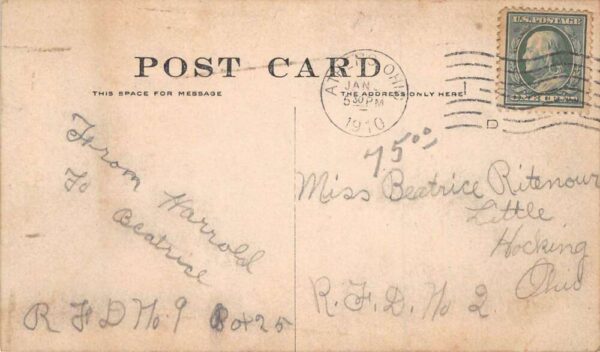 U.S. POSTAGE
POST CARD
THIS SPACE FOR MESSAGE
THE ADDRESS ONLY HERE
OHIO
JAN
530PM
1910
D
7500
From Harrold
To Beatrise
R F D No. 9 Box 25
Miss Beatrice Ritenour
Little
Hocking
Ohio
R.F.D. No 2.